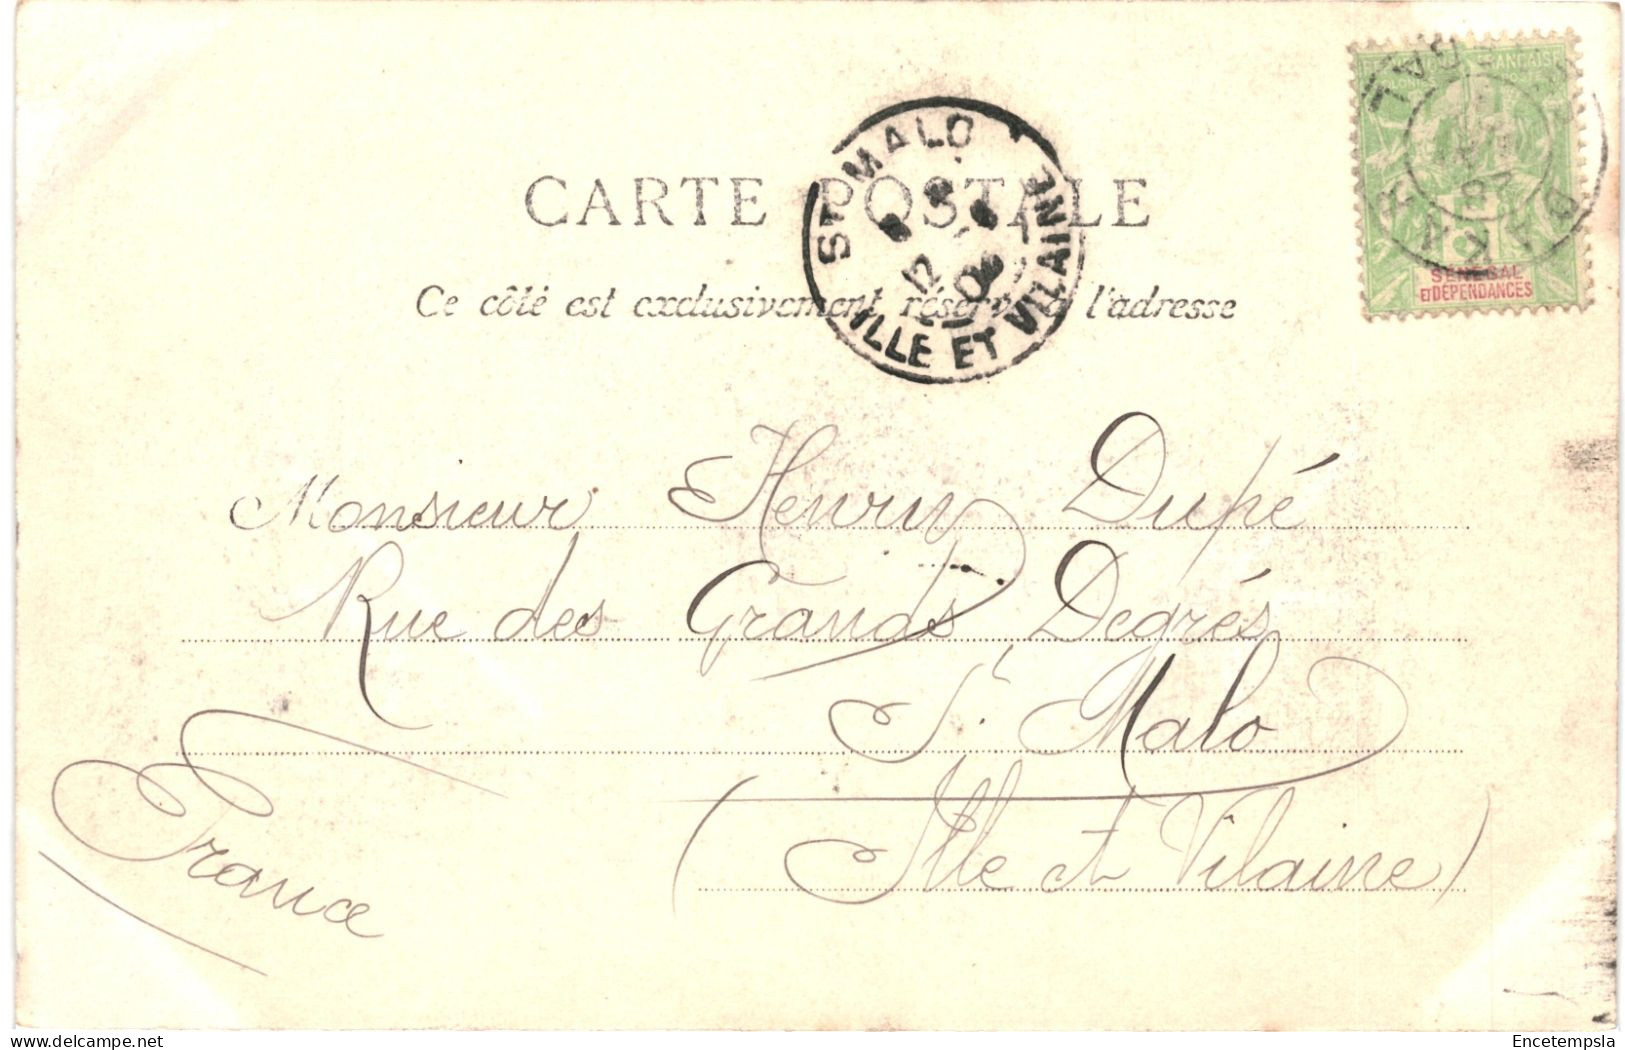 CARTE POSTALE
Ce côté est exclusivement réservé à l'adresse
ST MALO
12
ILLE ET VILAINE
DAKAR
SÉNÉGAL
ET DÉPENDANCES
Monsieur Henry Dupé
Rue des Grands Degrés
St Malo
(Ille et Vilaine)
France
Encetempsla